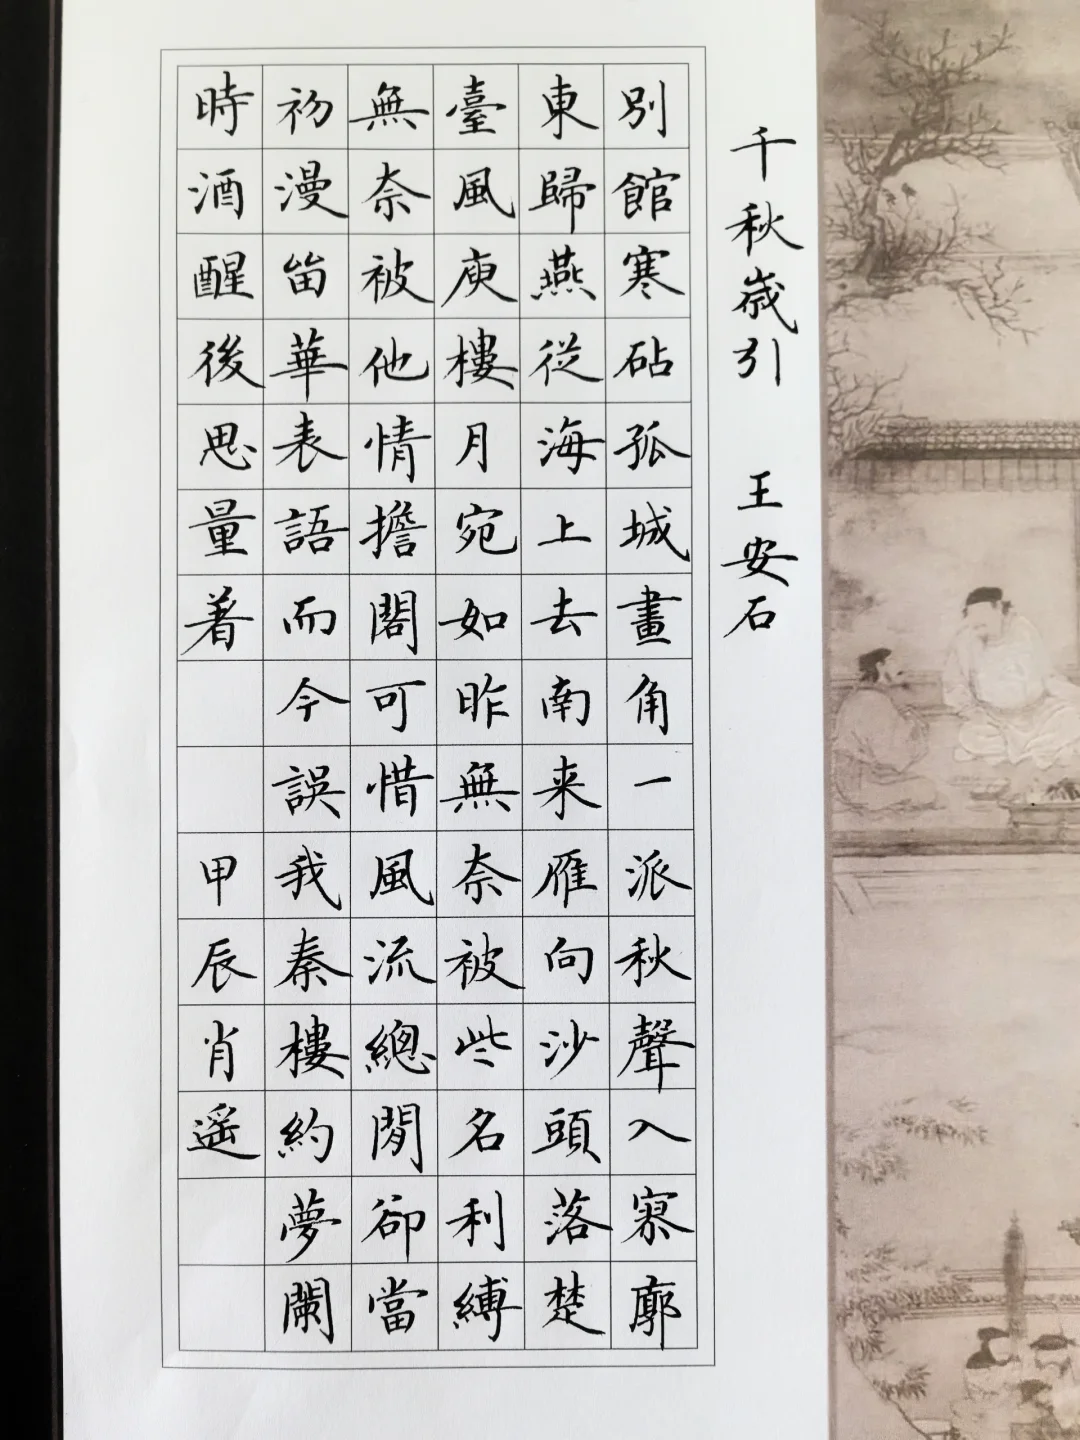 千秋歲引 王安石
別館寒砧孤城畫角一派秋聲入寥廓
東歸燕從海上去南来雁向沙頭落楚
臺風庾樓月宛如昨無奈被些名利縛
無奈被他情擔閣可惜風流總閒卻當
初漫留華表語而今誤我秦樓約夢闌
時酒醒後思量着 甲辰肖遥